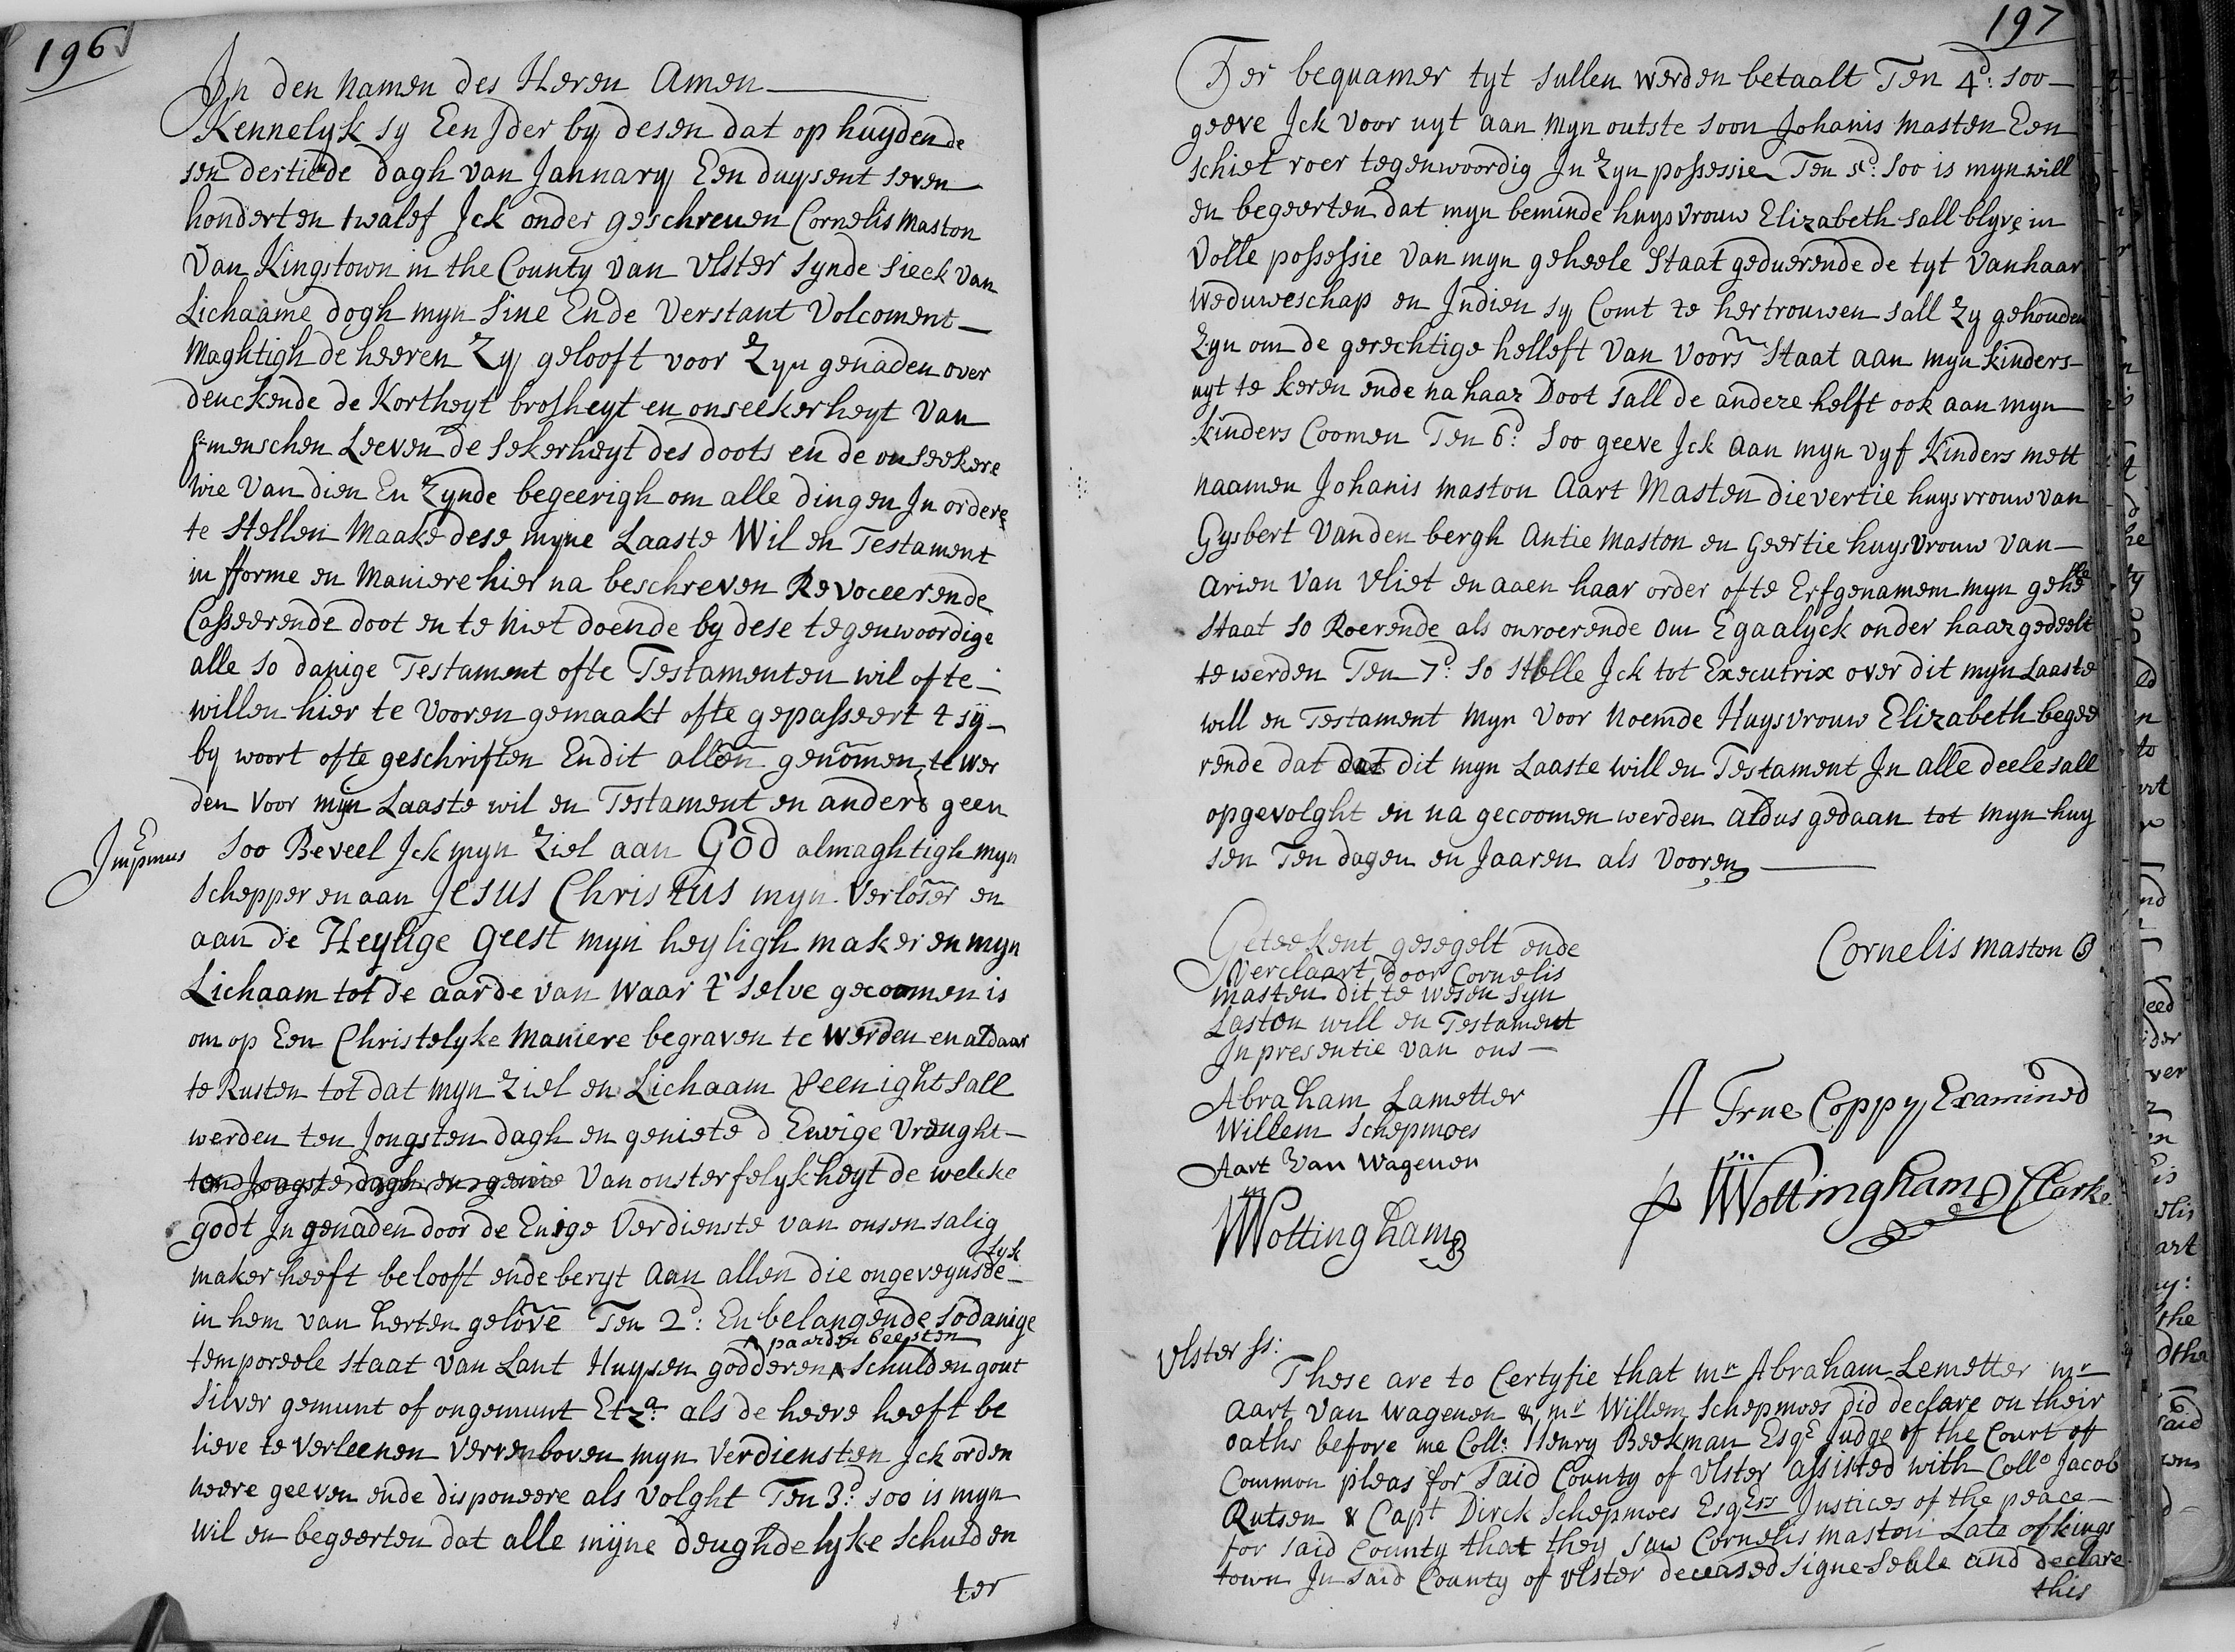 196
In den Namen des Heren Amen
Kennelyk sy Een Ider by desen dat op huyden de
sen dertiede dagh van January Een duysent seven
hondert en twalef Ick onder geschreven Cornelis Maston
Van Kingstown in the County van Vlster synde sieck van
Lichaame dogh myn sine Ende Verstant Volcoment
Maghtigh de heeren Zy gelooft voor Zyn genaden over
denckende de Kortheyt brosheyt en onseekerheyt Van
s menschen Leeven de sekerheyt des doots en de onseekere
wie Van dien En Zynde begeerigh om alle dingen In ordere
te stellen Maake dese myne Laaste Wil en Testament
in fforme en Maniere hier na beschreven Revoceerende
Casseerende doot en te niet doende by dese tegenwoordige
alle so danige Testament ofte Testamenten wil ofte
willen hier te Vooren gemaakt ofte gepasseert t sÿ
by woort ofte geschriften En dit alleen genomen te wer
den Voor mijn Laaste wil en Testament en anders geen
Impmus Soo Beveel Ick myn Ziel aan God almaghtigh myn
schepper en aan Jesus Christus myn Verloser en
aan de Heylige Geest myn heyligh maker en myn
Lichaam tot de aarde van waar t selve gecoomen is
om op Een Christelyke Maniere begraven te werden en aldaar
te Rusten tot dat myn Ziel en Lichaam Veenight sall
werden ten Jongsten dagh en geniete d Ewige Vreught
ten Jongste dagh en genie Van onsterfelykheyt de welcke
godt In genaden door de Enige Verdienste van onsen salig
maker heeft belooft ende beryt Aan allen die ongeveynsde lyk
in hem van herten gelove Ten 2d: En belangende sodanige
temporeele staat van Lant Huysen godderen ^ paarden beesten schulden gout
silver gemunt of ongemunt Etza: als de heere heeft be
lieve te Verleenen Verrenboven myn Verdiensten Ick orden
neere geeven ende disponeere als Volght Ten 3d: soo is myn
wil en begeerten dat alle mijne deughdelyke schulden
ter
197
Ter bequamer tyt sullen werden betaalt Ten 4d: soo
geeve Ick Voor uyt aan myn outste soon Johanis Masten Een
schiet roer tegenwoordig In Zyn possessie Ten 5d: soo is myn will
en begeerten dat myn beminde huysvrouw Elizabeth sall blyve in
Volle possessie Van myn geheele Staat geduerende de tyt Van haar
Weduweschap en Indien sy Comt te hertrouwen sall Zy gehouden
Zyn om de gerechtige helleft Van voors Staat aan myn kinders
uyt te keren ende na haar Doot sall de andere helft ook aan myn
kinders Coomen Ten 6d: soo geeve Ick aan myn vyf Kinders mett
naamen Johanis Maston Aart Masten dievertie huysvrouw van
Gysbert Vanden bergh Antie Maston en Geertie huysvrouw Van
Arien Van Vliet en aaen haar order ofte Erfgenamem myn gehelle
staat so Roerende als onroerende om Egaalyck onder haar gedeelt
te werden Ten 7d: so stelle Ick tot Executrix over dit myn Laaste
will en Testament myn Voor Noemde Huysvrouw Elizabeth begee
rende dat dat dit myn Laaste will en Testament In alle deele sall
opgevolght en na gecoomen werden aldus gedaan tot myn huy
sen Ten dagen en Jaaren als Vooren
Geteekent gesegelt ende
Verclaart door Cornelis
Masten dit te wesen syn
Lasten will en Testament
In presentie van ons
Cornelis Maston
Abraham Lametter
Willem Schepmoes
Aart Van Wagenen
WWottingham
A True Coppy Examined
p WWottingham Clarke
Vlster ss:
These are to Certyfie that mr Abraham Lemetter mr
Aart Van Wagenen & mr Willem Schepmoes did declare on their
oaths before me Coll: Henry Beekman Esqe Judge of the Court of
Common pleas for said County of Vlster assisted with Collo Jacob
Rutsen & Capt Dirck Schepmoes Esqers Justices of the peace
for said County that they saw Cornelis Maston Late of kings
town In said County of Vlster deceased signe seale and declare
this